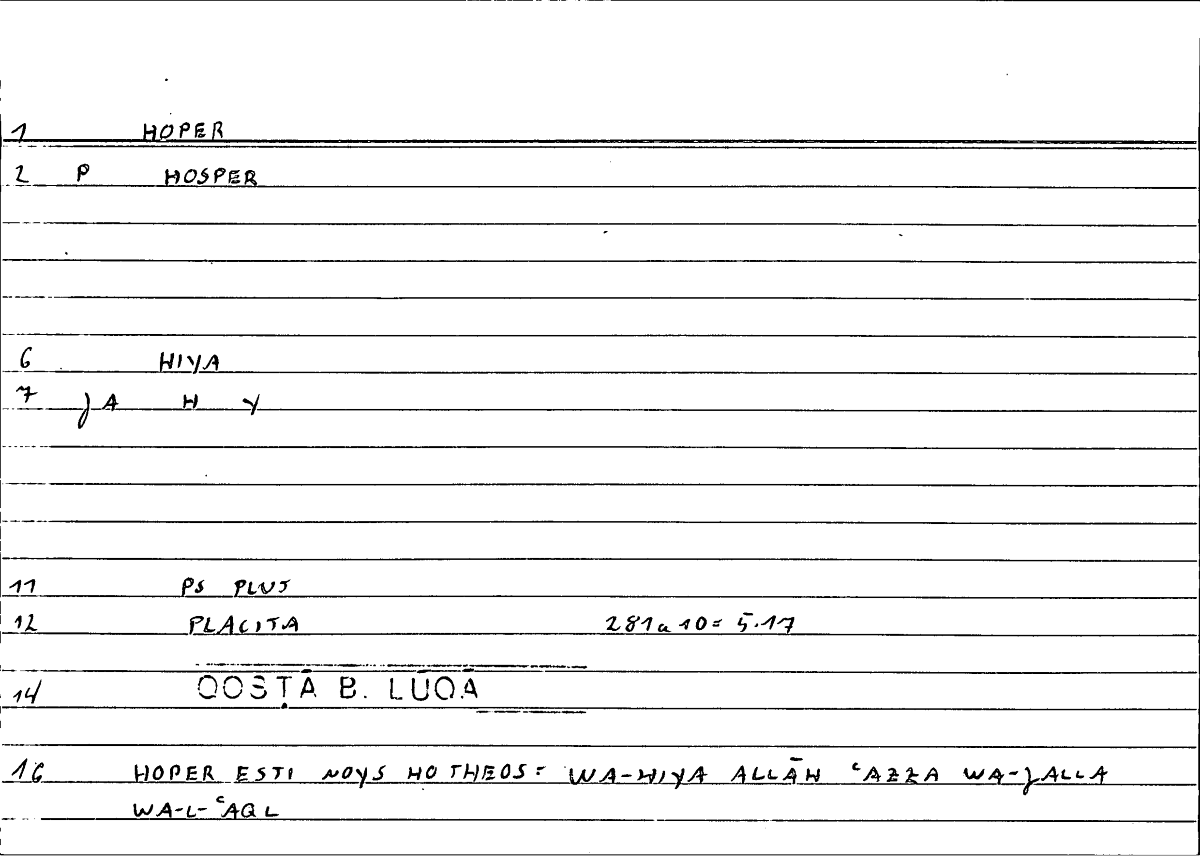 1 HOPER
2 P HOSPER
6 HIYA
7 JA H Y
11 PS PLUT
12 PLACITA 281a10= 5.17
14 QOSṬĀ B. LŪQĀ
16 HOPER ESTI NOYS HO THEOS= WA-HIYA ALLĀH ʿAZZA WA-JALLA
WA-L-ʿAQL